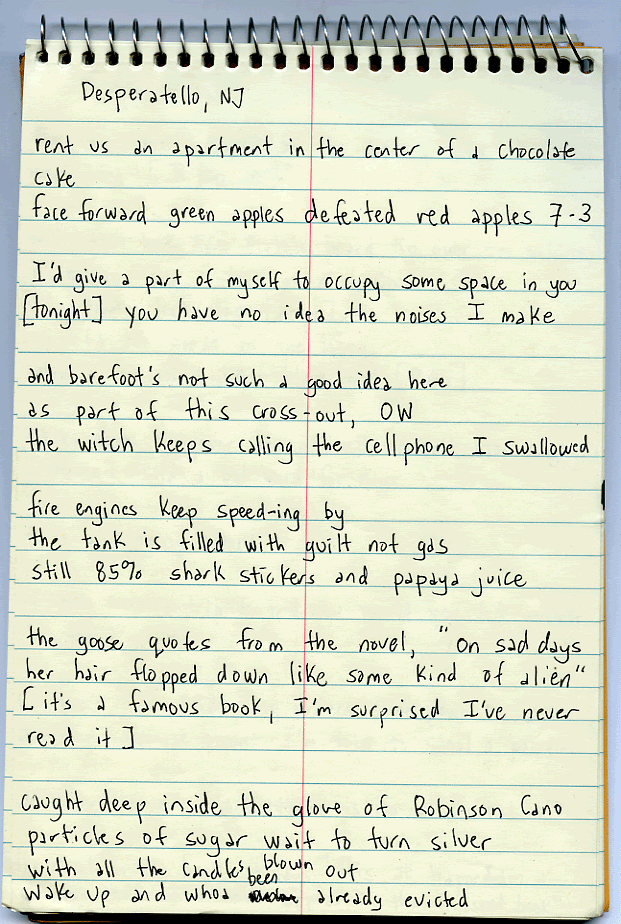 Desperatello, NJ
rent us an apartment in the center of a chocolate
cake
face forward green apples defeated red apples 7-3
I'd give a part of myself to occupy some space in you
[tonight] you have no idea the noises I make
and barefoot's not such a good idea here
as part of this cross-out, OW
the witch keeps calling the cell phone I swallowed
fire engines keep speed-ing by
the tank is filled with guilt not gas
still 85% shark stickers and papaya juice
the goose quotes from the novel, "on sad days
her hair flopped down like some kind of aliën"
[it's a famous book, I'm surprised I've never
read it]
caught deep inside the glove of Robinson Cano
particles of sugar wait to turn silver
with all the candles blown out
wake up and whoa been already evicted